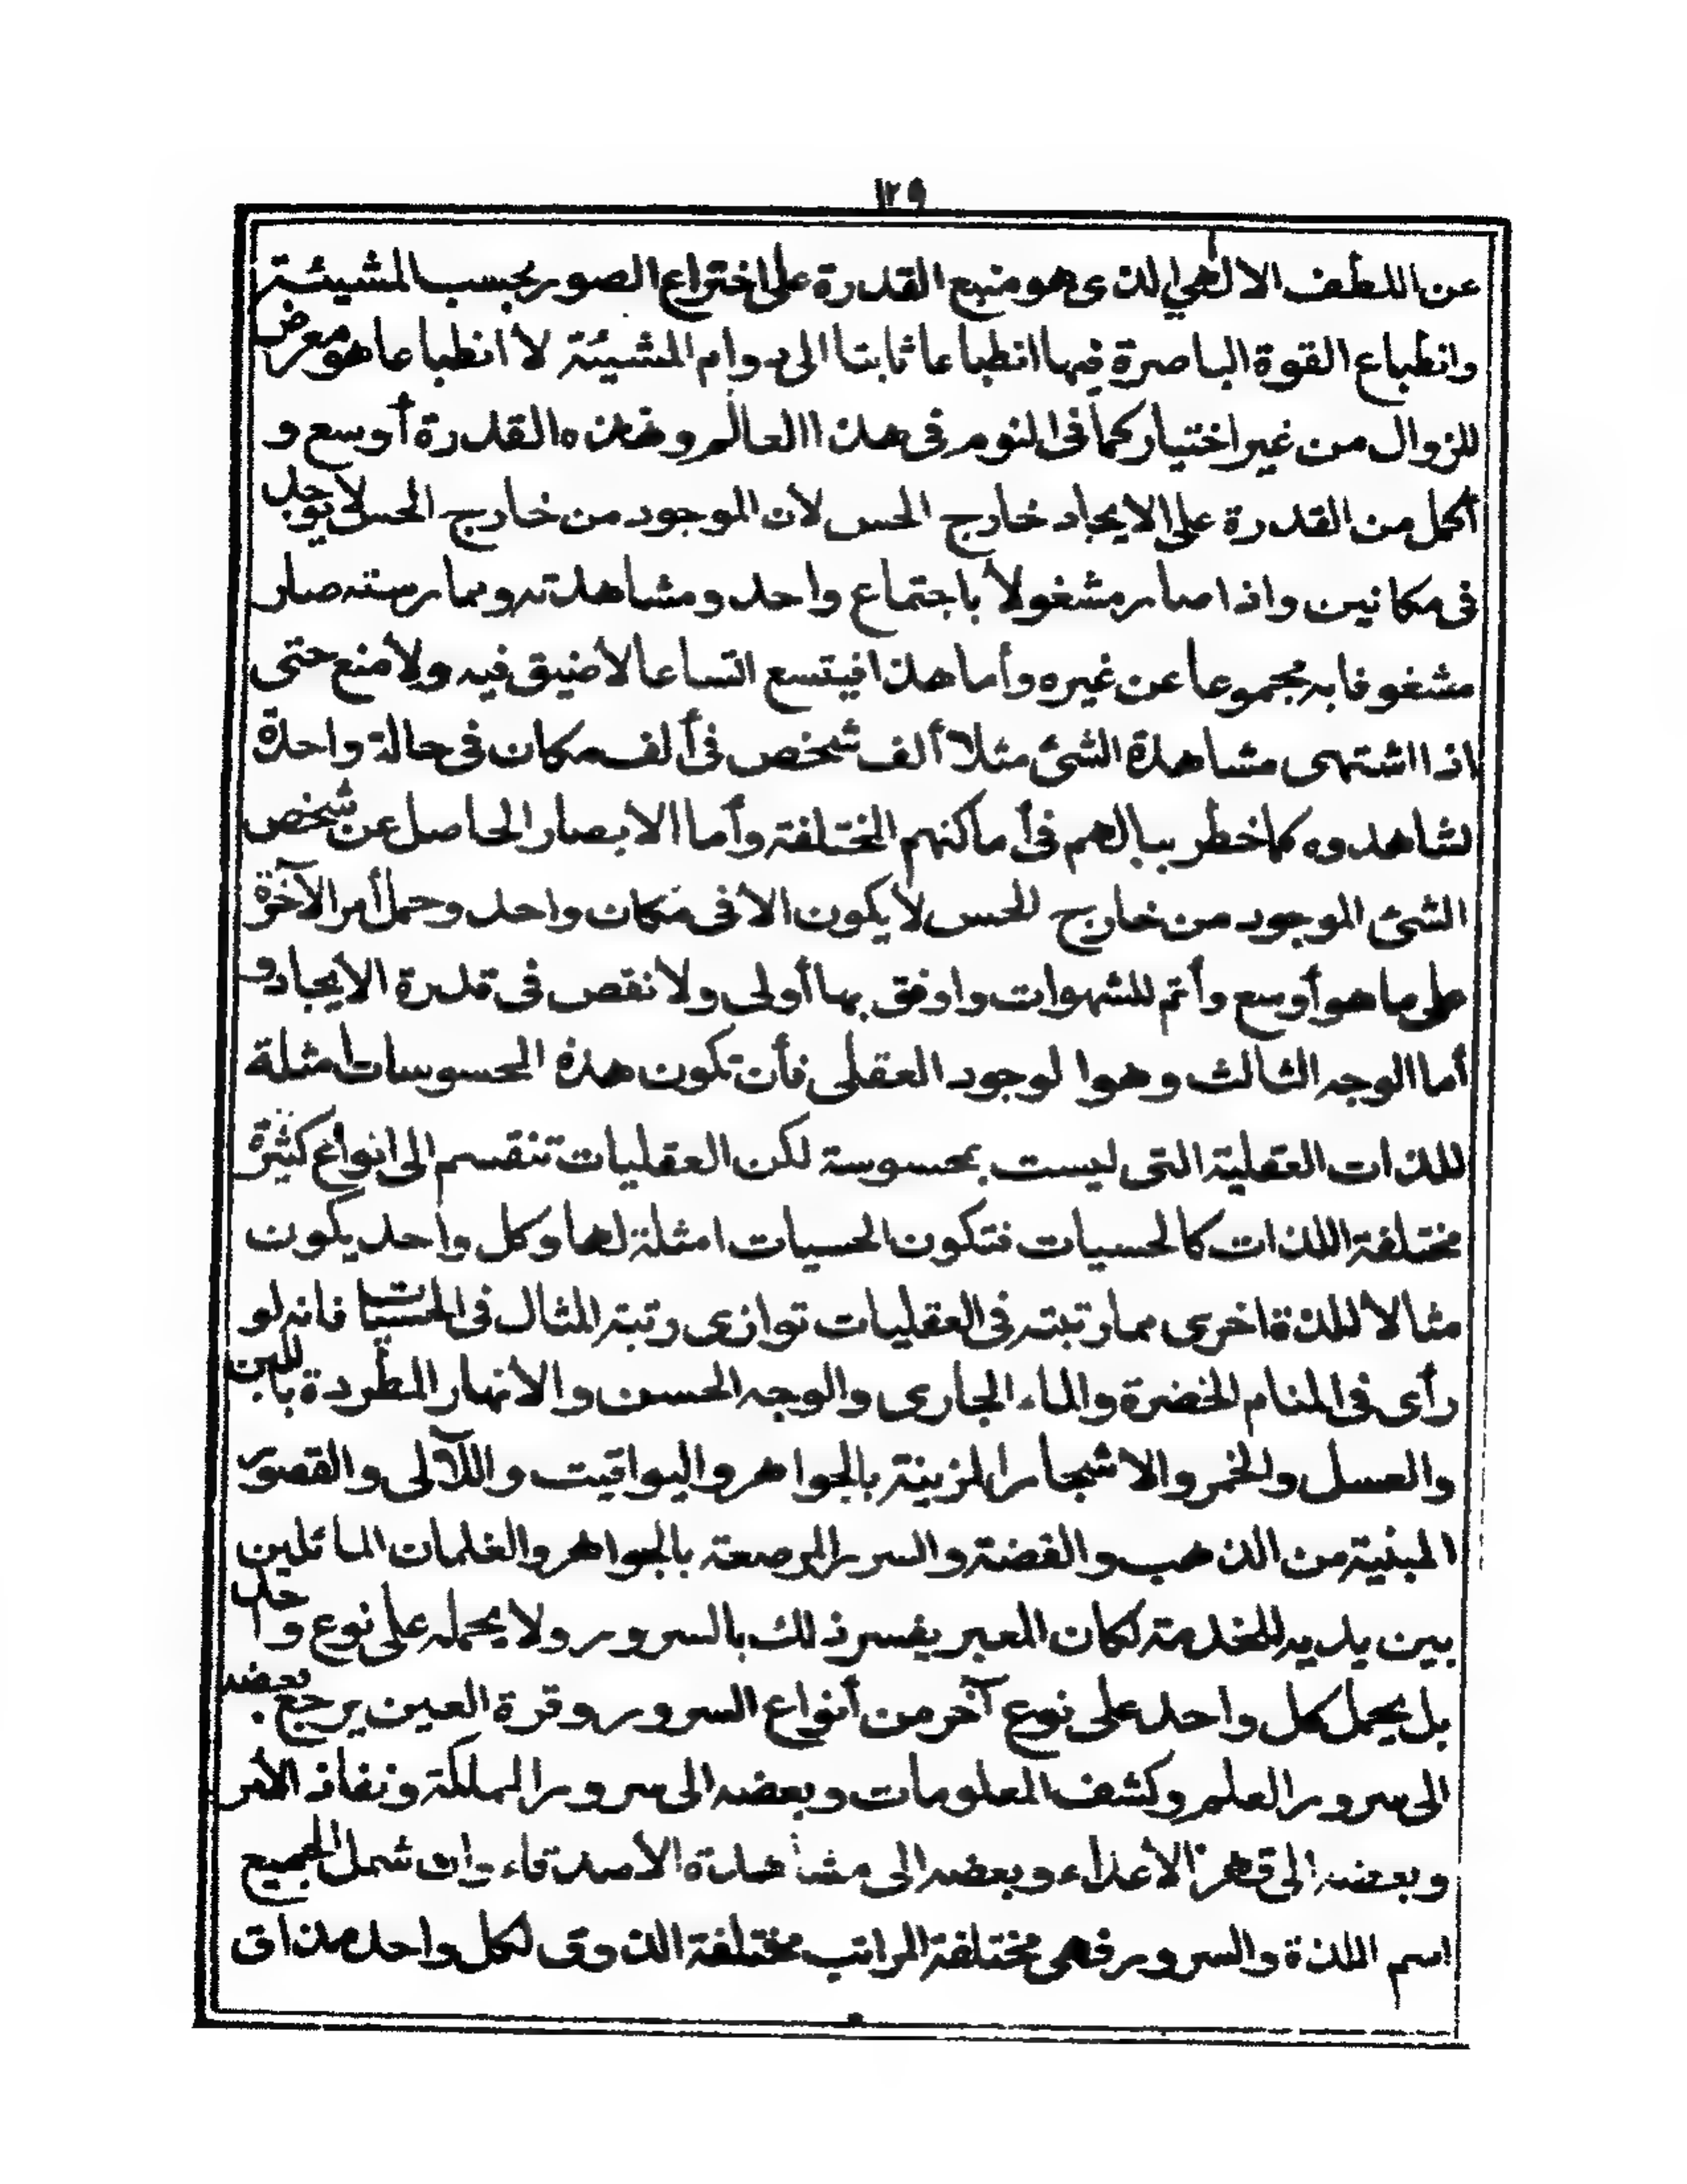 ١٢٩
عن اللطف الالهي الذى هو منبع القدرة على اختراع الصور بحسب المشيئة
وانطباع القوة الباصرة فيها انطباعا ثابتا الى دوام المشيئة لا انطباعا هو معرض
للزوال من غير اختيار كما فى النوم فى هذا العالم وهذه القدرة أوسع و
أكمل من القدرة على الايجاد خارج الحس لأن الموجود من خارج الحس لا يوجد
فى مكانين واذا صار مشغولا باجتماع واحد ومشاهدته وممارسته صار
مشغوفا به مجموعا عن غيره وأما هذا فيتسع اتساعا لا ضيق فيه ولا منع حتى
اذا اشتهى مشاهدة الشئ مثلا ألف شخص فى ألف مكان فى حالة واحدة
لشاهدوه كما خطر ببالهم فى أماكنهم المختلفة وأما الابصار الحاصل عن شخص
الشئ الموجود من خارج للحس لا يكون الا فى مكان واحد وحمل أمر الآخرة
على ما هو أوسع وأتم للشهوات واوفق بها أولى ولا نقص فى قدرة الايجاد و
أما الوجه الثالث وهوا لوجود العقلى فأن تكون هذه المحسوسات امثلة
للذات العقلية التى ليست بمحسوسة لكن العقليات تنقسم الى انواع كثيرة
مختلفة اللذات كالحسيات فتكون الحسيات امثلة لها وكل واحد يكون
مثالا للذة اخرى مما رتبته فى العقليات توازى رتبة المثال فى الحسيات فانه لو
رأى فى المنام الخضرة والماء الجارى والوجه الحسن والأنهار المطردة باللبن
والعسل والخمر والاشجار المزينة بالجواهر واليواقيت واللآلى والقصور
المبنية من الذهب والفضة والسرر المرصعة بالجواهر والغلمان الماثلين
بين يديه للخدمة لكان المعبر يفسر ذلك بالسرور ولا يحمله على نوع واحد
بل يحمل كل واحد على نوع آخر من أنواع السرور وقرة العين يرجع بعضه
الى سرور العلم وكشف المعلومات وبعضه الى سرور المملكة ونفاذ الأمر
وبعضه الى قهر الأعداء وبعضه الى مشاهدة الأصدقاء وان شمل الجميع
اسم اللذة والسرور فهى مختلفة المراتب مختلفة الذوق لكل واحد مذاق